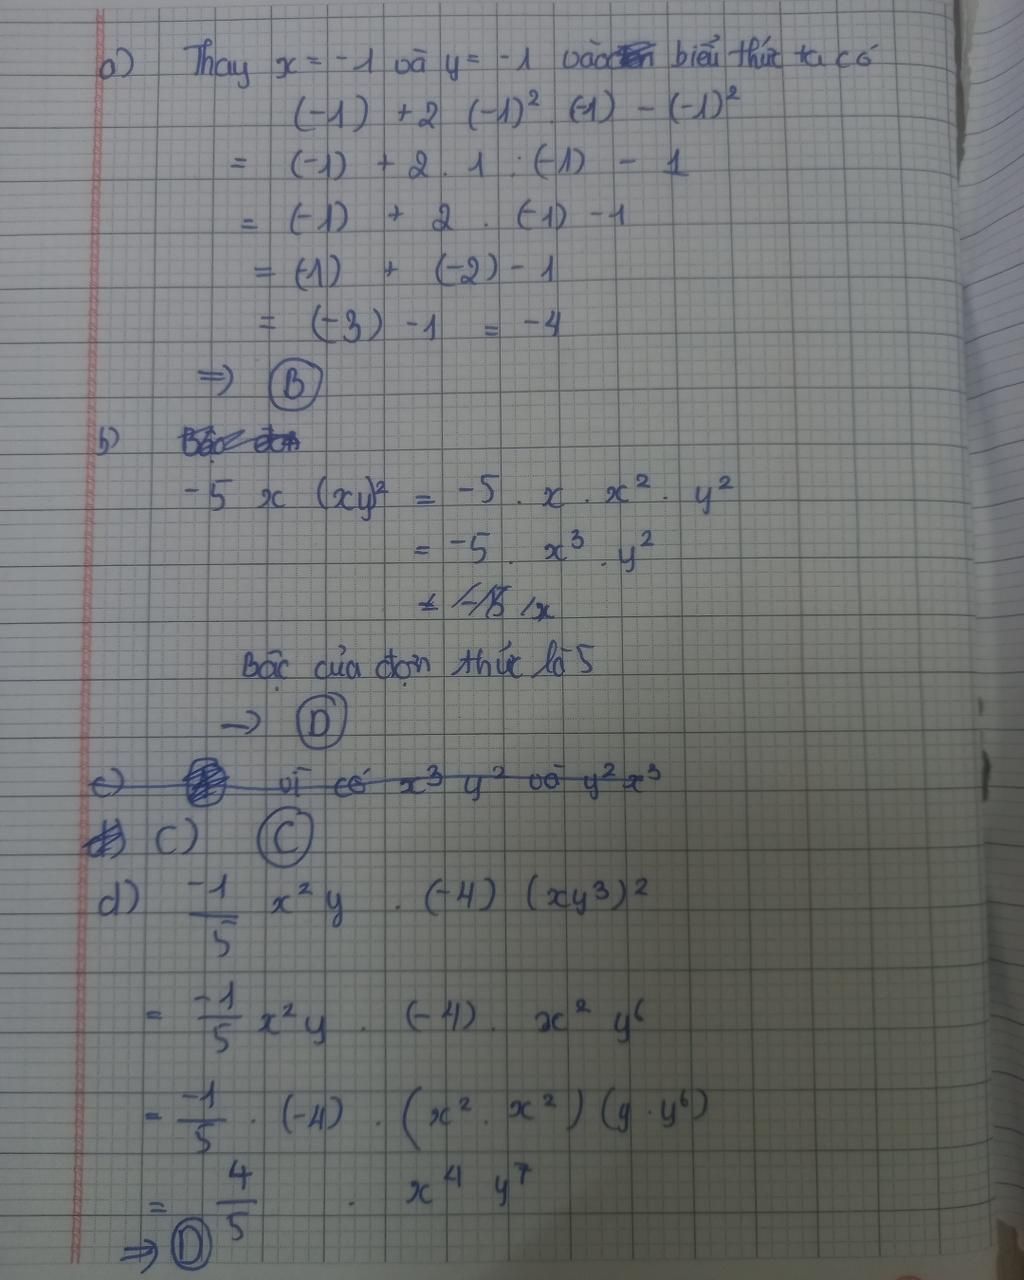 a) Thay x = -1 và y = -1 vào biểu thức ta có
(-1) + 2 (-1)² . (-1) - (-1)²
= (-1) + 2 . 1 . (-1) - 1
= (-1) + 2 . (-1) - 1
= (-1) + (-2) - 1
= (-3) - 1 = -4
=> B
b)
-5 x (xy)² = -5 . x . x² . y²
= -5 . x³ . y²
Bậc của đơn thức là 5
→ D
c) vì có x³ y² và y² x³
C) C
d) -1/5 x² y . (-4) (xy³)²
= -1/5 x² y . (-4) . x² y⁶
= -1/5 . (-4) . (x² . x²) (y . y⁶)
= 4/5 . x⁴ y⁷
=> D